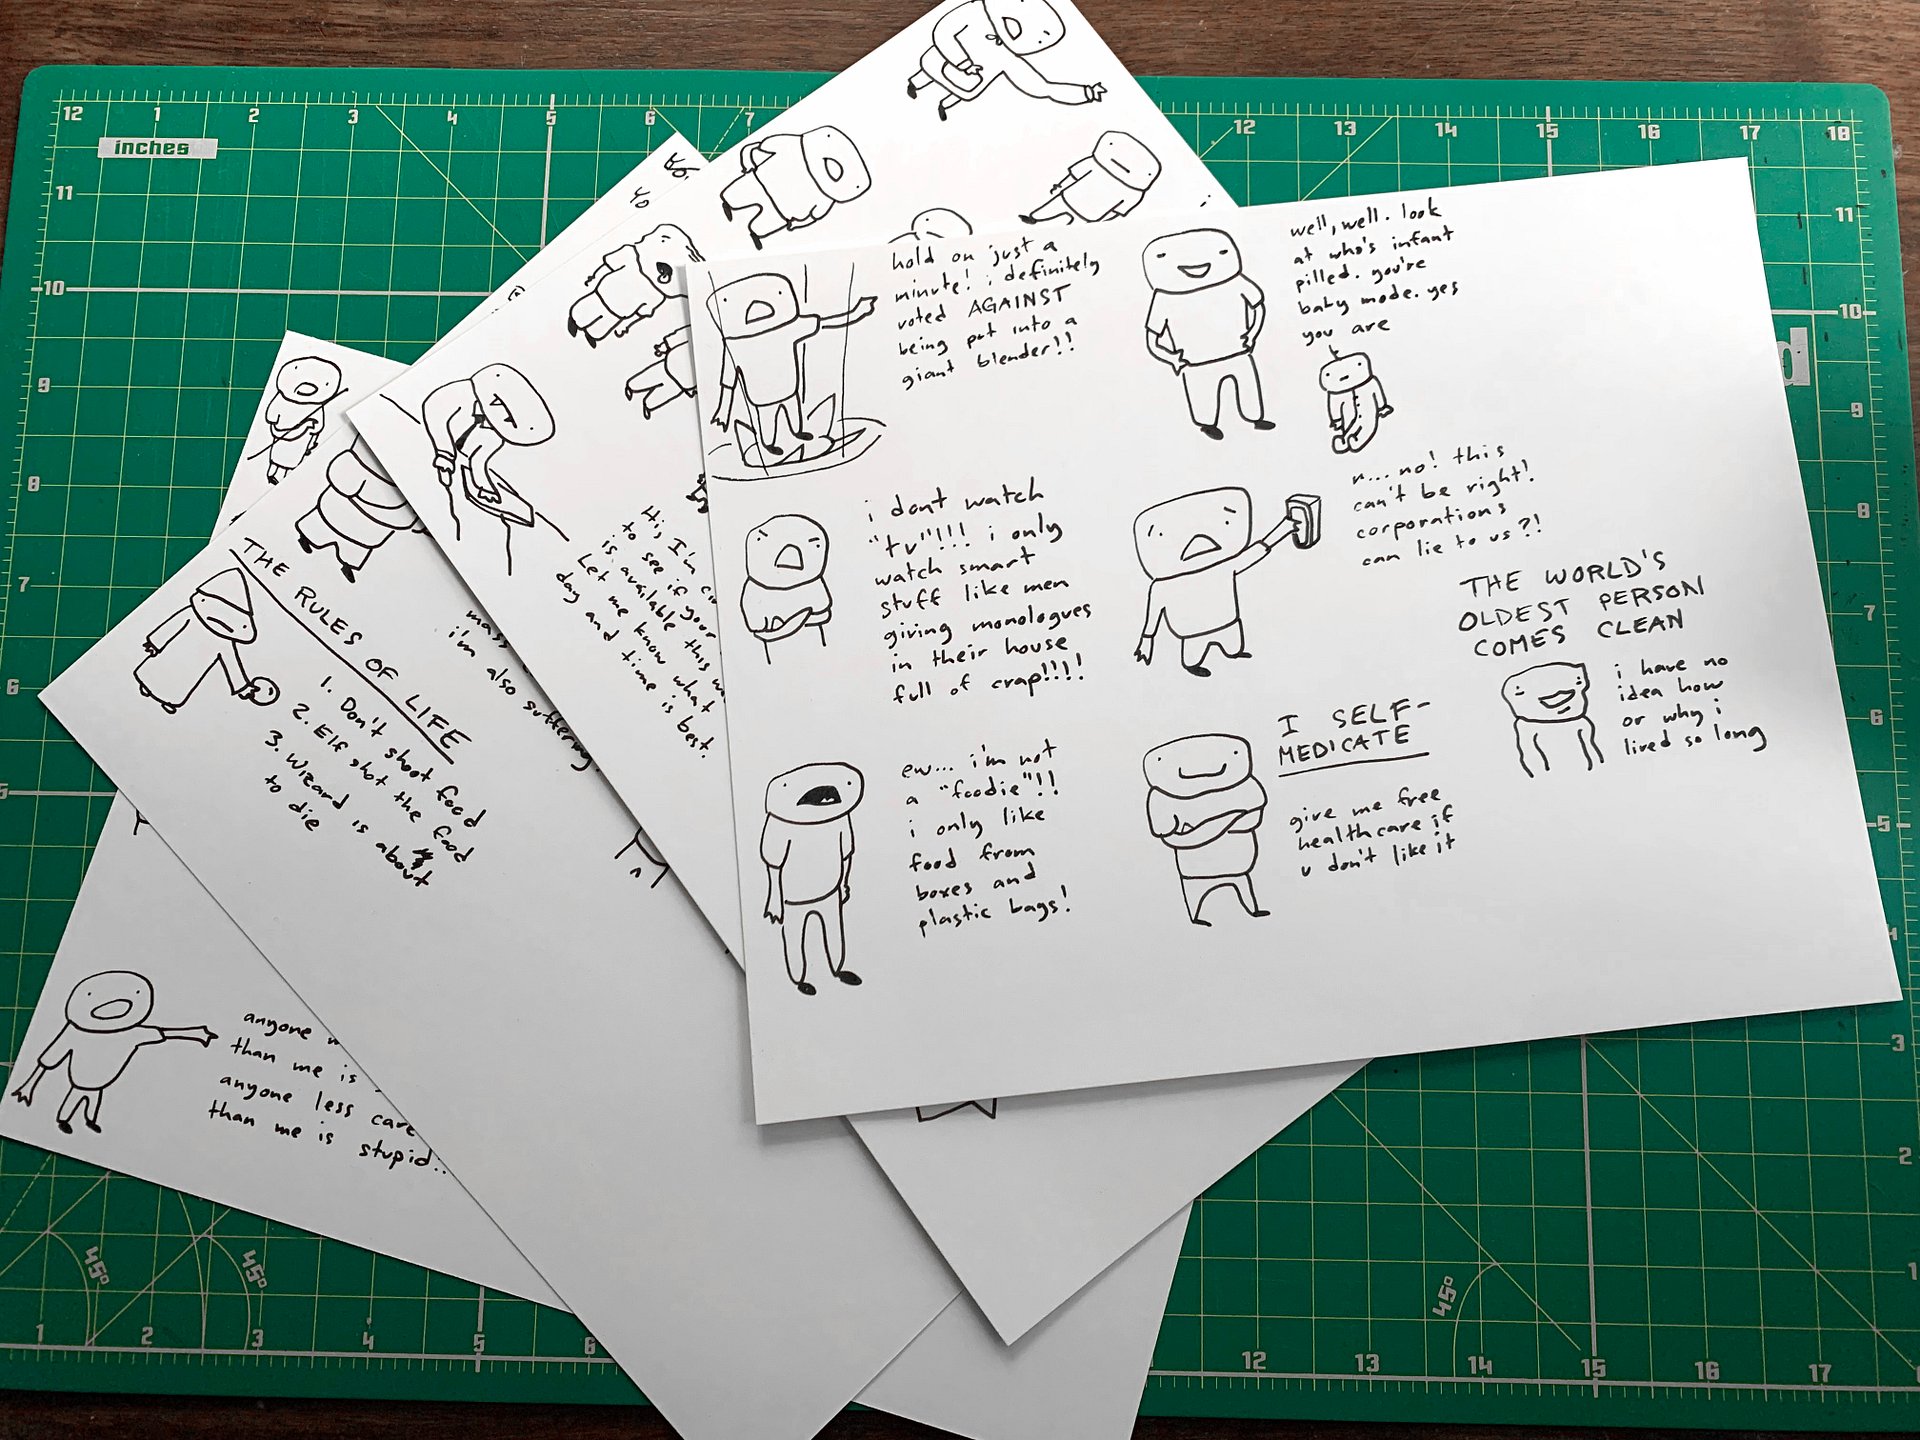 hold on just a
minute! i definitely
voted AGAINST
being put into a
giant blender!!
well, well. look
at who's infant
pilled. you're
baby mode. yes
you are
i dont watch
"tv"!!! i only
watch smart
stuff like men
giving monologues
in their house
full of crap!!!!
n... no! this
can't be right!
corporations
can lie to us?!
THE WORLD'S
OLDEST PERSON
COMES CLEAN
i have no
idea how
or why i
lived so long
ew... i'm not
a "foodie"!!
i only like
food from
boxes and
plastic bags!
I SELF-
MEDICATE
give me free
healthcare if
u don't like it
Hi, I'm
to see if your
is available this
Let me know what
day and time is best.
mass
i'm also suffering.
THE RULES OF LIFE
1. Don't shoot food
2. Elf shot the food
3. Wizard is about
to die
anyone
than me is
anyone less care
than me is stupid..
inches
12 1 2 3 4 5 6 7 12 13 14 15 16 17 18
11 10 9 8 7 6 5
11 10 9 8 7 6 5 4 3 2 1
45° 45° 45°
1 2 3 4 5 6 12 13 14 15 16 17